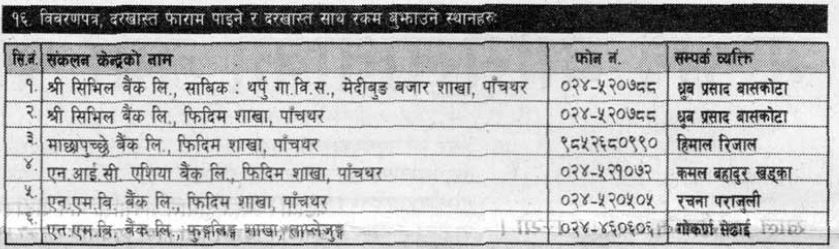 १६. विवरणपत्र, दरखास्त फाराम पाइने र दरखास्त साथ रकम बुझाउने स्थानहरुः
सि.नं. संकलन केन्द्रको नाम फोन नं. सम्पर्क व्यक्ति
१. श्री सिभिल बैंक लि., साबिक : थर्पु गा.वि.स., मेदीबुङ बजार शाखा, पाँचथर ०२४-५२०७८८ ध्रुब प्रसाद बासकोटा
२. श्री सिभिल बैंक लि., फिदिम शाखा, पाँचथर ०२४-५२०७८८ ध्रुब प्रसाद बासकोटा
३. माछापुच्छ्रे बैंक लि., फिदिम शाखा, पाँचथर ९८५२६८०९९० हिमाल रिजाल
४. एन.आई.सी. एशिया बैंक लि., फिदिम शाखा, पाँचथर ०२४-५२१०७२ कमल बहादुर खड्का
५. एन.एम.बि. बैंक लि., फिदिम शाखा, पाँचथर ०२४-५२०५०५ रचना पराजुली
६. एन.एम.बि. बैंक लि., फुङ्गलिङ्ग शाखा, ताप्लेजुङ्ग ०२४-४६०६०६ गोकर्ण सेढाई